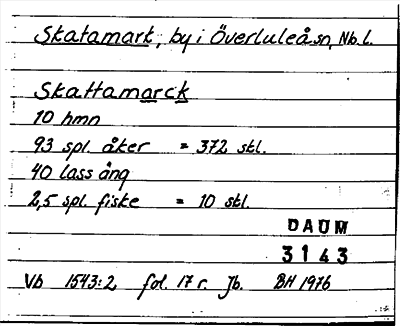 Skatamark, by i Överluleå sn, Nb. l.
Skattamarck
10 hmn
93 spl. åker = 372 skl.
40 lass äng
2,5 spl. fiske = 10 skl.
DAUM
3143
Vb 1543:2, fol. 17 r. Jb. BH 1976